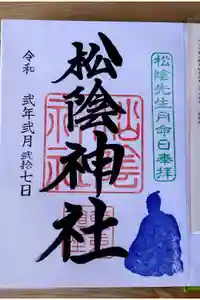 松陰先生月命日奉拝
松陰神社
令和
弐年弐月弐拾七日